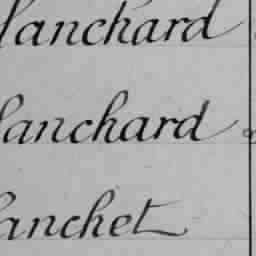 lanchard
lanchard
lanchet